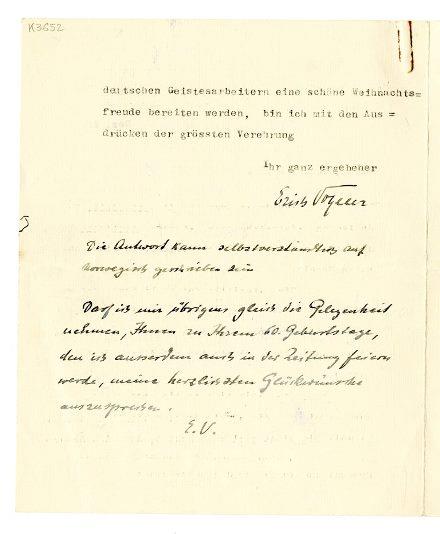 K3652
deutschen Geistesarbeitern eine schöne Weihnachts=
freude bereiten werden, bin ich mit den Aus =
drücken der grössten Verehrung
Ihr ganz ergebener
Erich
Die Antwort kann selbstverständlich auf
norwegisch geschrieben sein
Darf ich mir übrigens gleich die Gelegenheit
nehmen, Ihnen zu Ihrem 60. Geburtstage,
den ich ausserdem auch in der Zeitung feiern
werde, meine herzlichsten Glückwünsche
auszusprechen.
E.V.